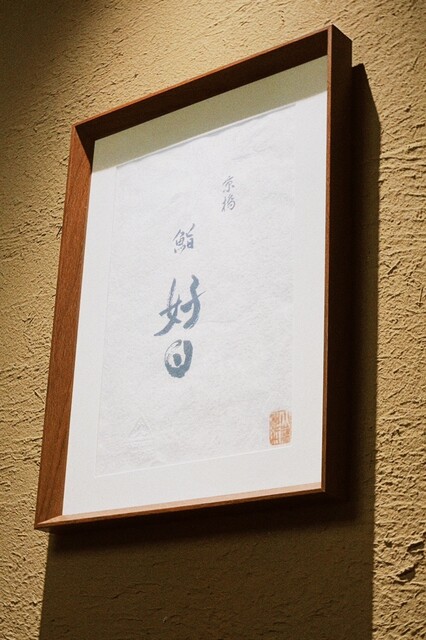 京橋
鮨
好日